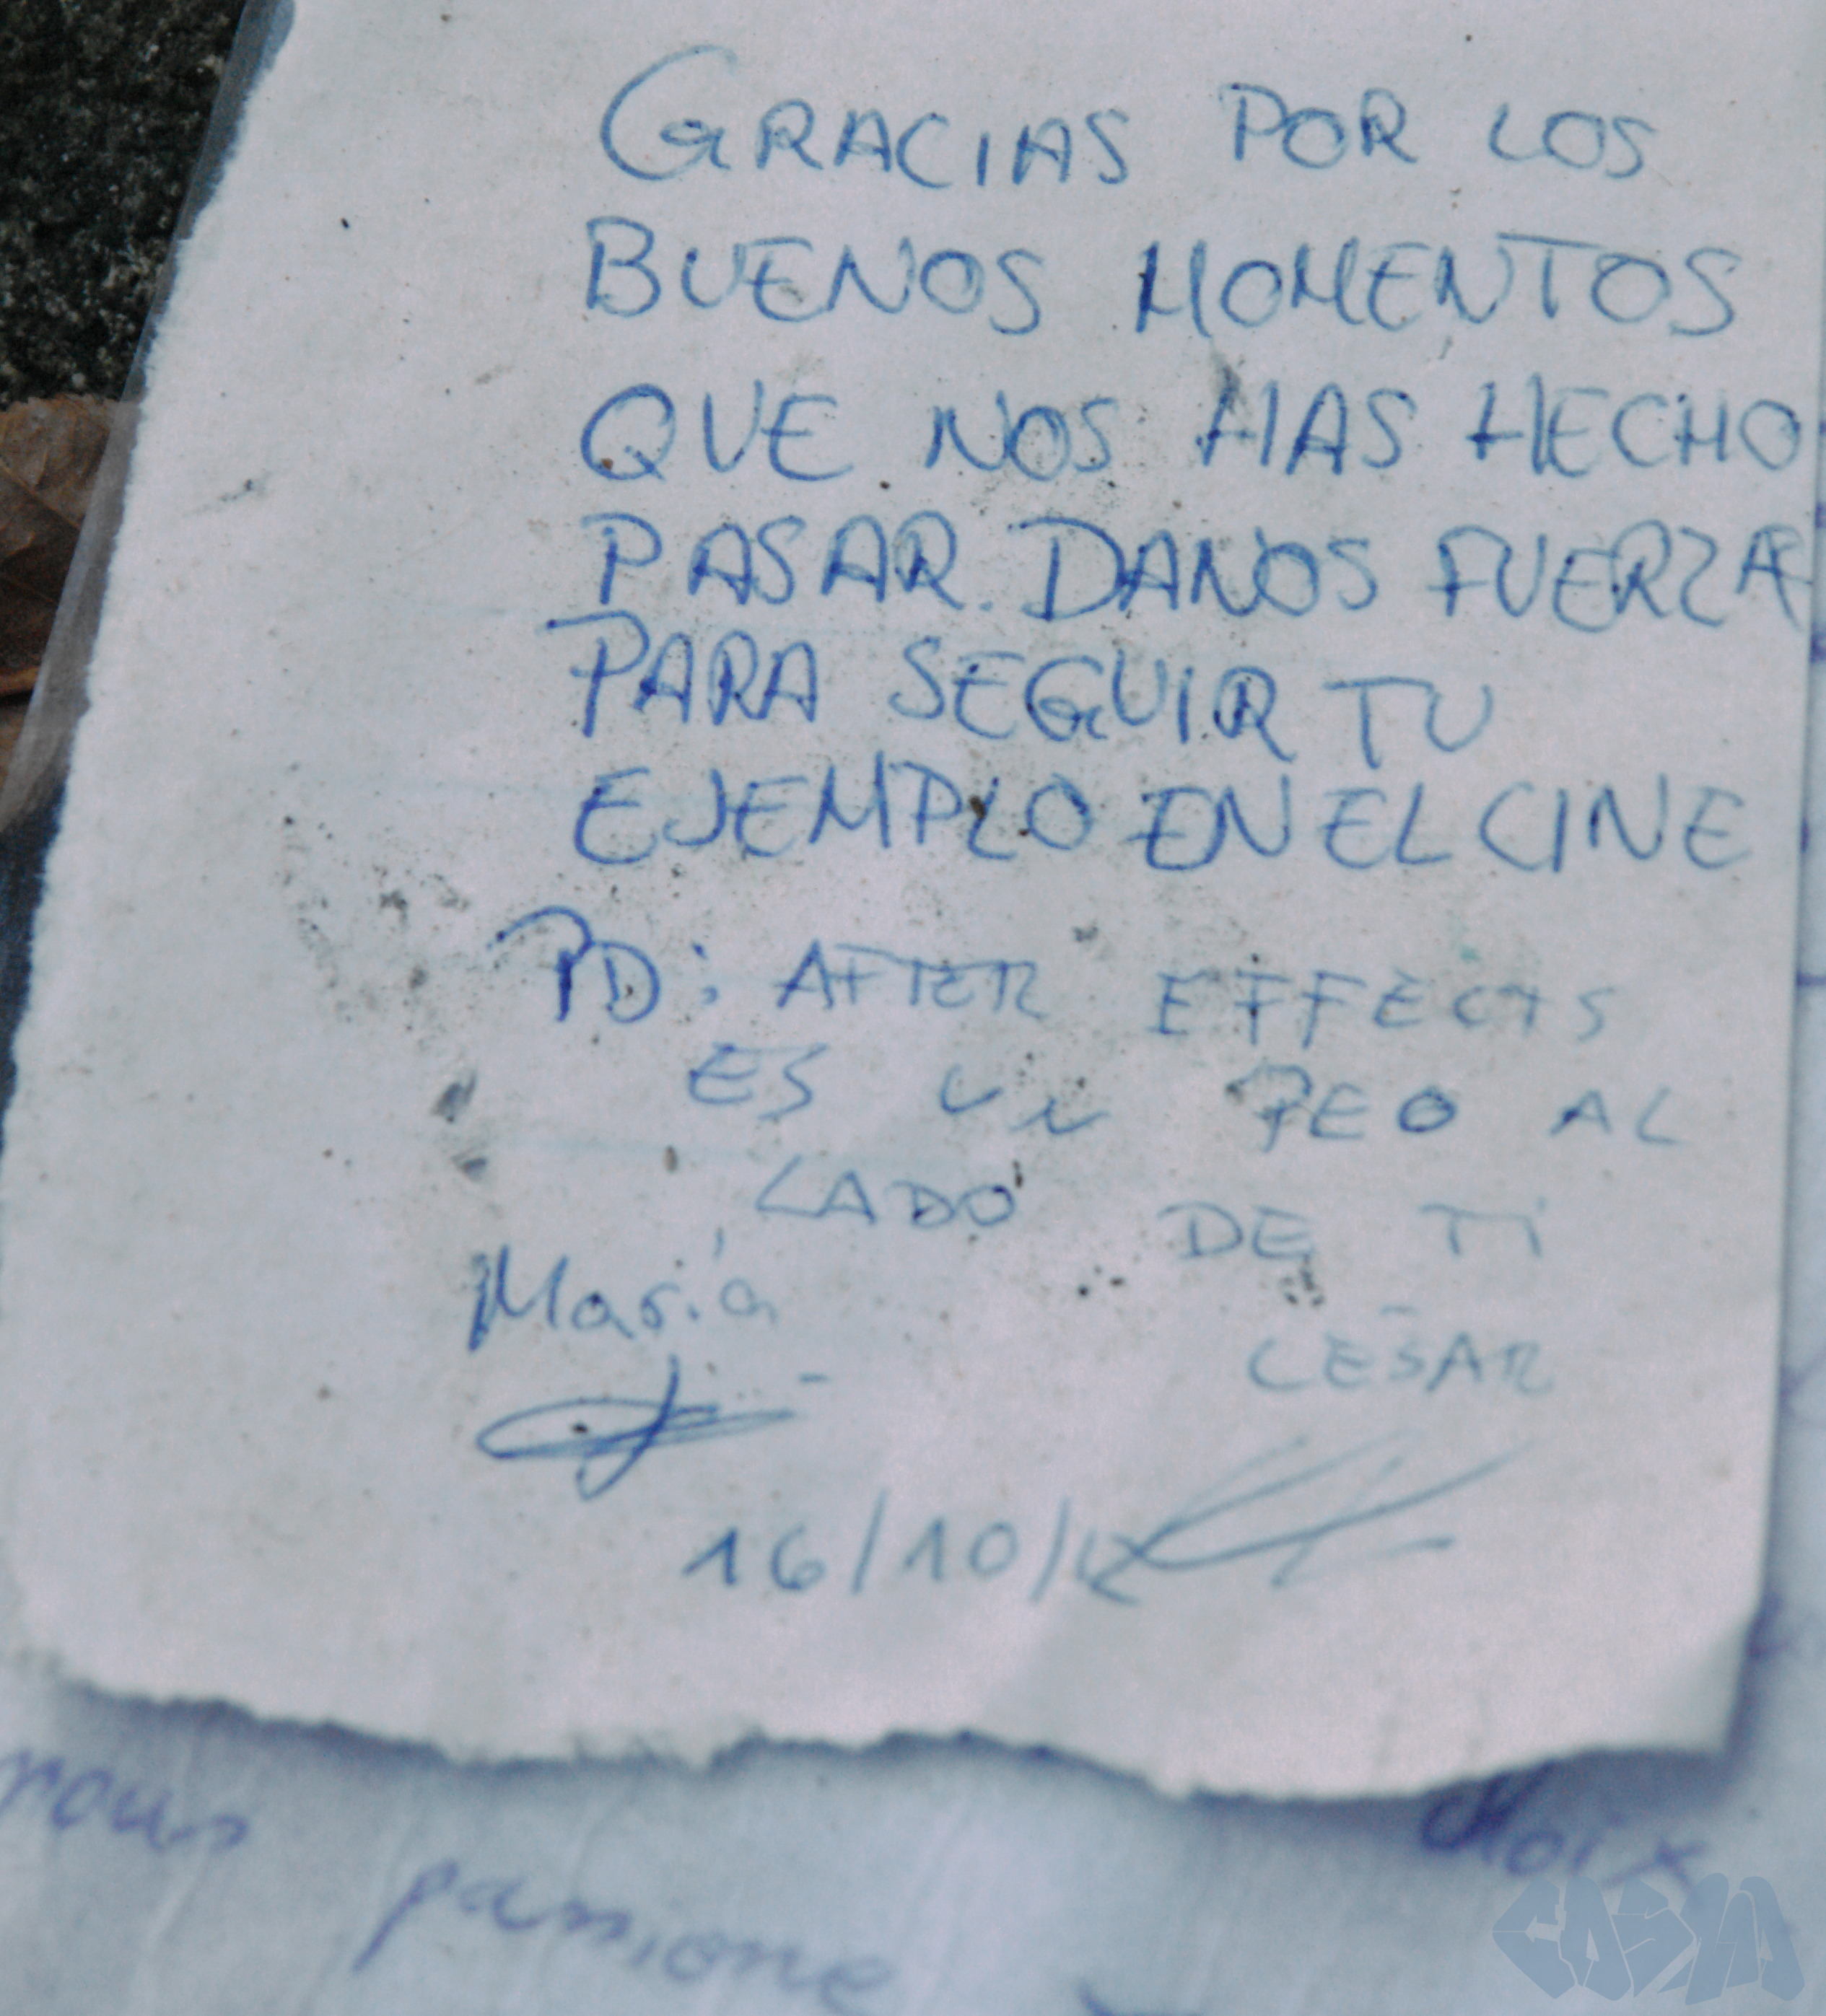 GRACIAS POR LOS
BUENOS MOMENTOS
QUE NOS HAS HECHO
PASAR. DANOS FUERZA
PARA SEGUIR TU
EJEMPLO EN EL CINE
PD: AFTER EFFECTS
ES UN PEO AL
LADO DE TI
María
CESAR
16/10/
nous
passionne